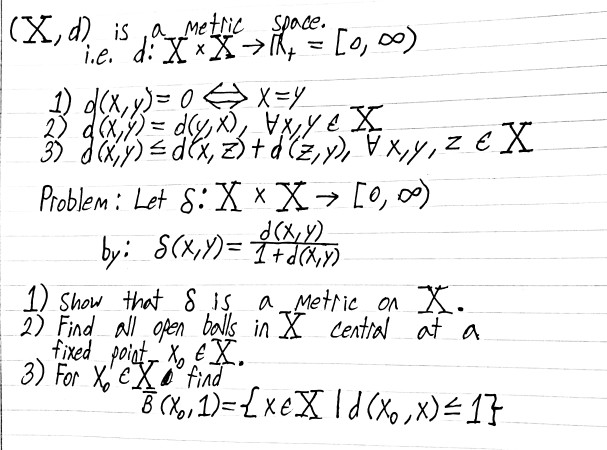 (X, d) is a metric space.
i.e. d: X × X → ℝ₊ = [0, ∞)
1) d(x,y) = 0 ⟺ x=y
2) d(x,y) = d(y,x), ∀x,y ∈ X
3) d(x,y) ≤ d(x,z) + d(z,y), ∀ x,y,z ∈ X
Problem: Let δ: X × X → [0, ∞)
by: δ(x,y) = d(x,y) / 1 + d(x,y)
1) Show that δ is a metric on X.
2) Find all open balls in X central at a
fixed point x₀ ∈ X.
3) For x₀ ∈ X find
B̄(x₀,1) = {x ∈ X | d(x₀,x) ≤ 1}